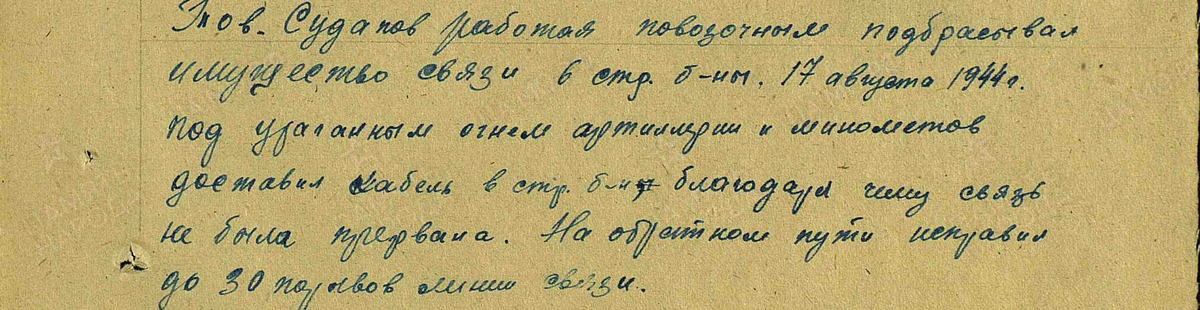 Тов. Судаков работая повозочным подбрасывал
имущество связи в стр. б-ны. 17 августа 1944г.
под ураганным огнем артиллерии и минометов
доставил кабель в стр. б-н благодаря чему связь
не была прервана. На обратном пути исправил
до 30 порывов линии связи.